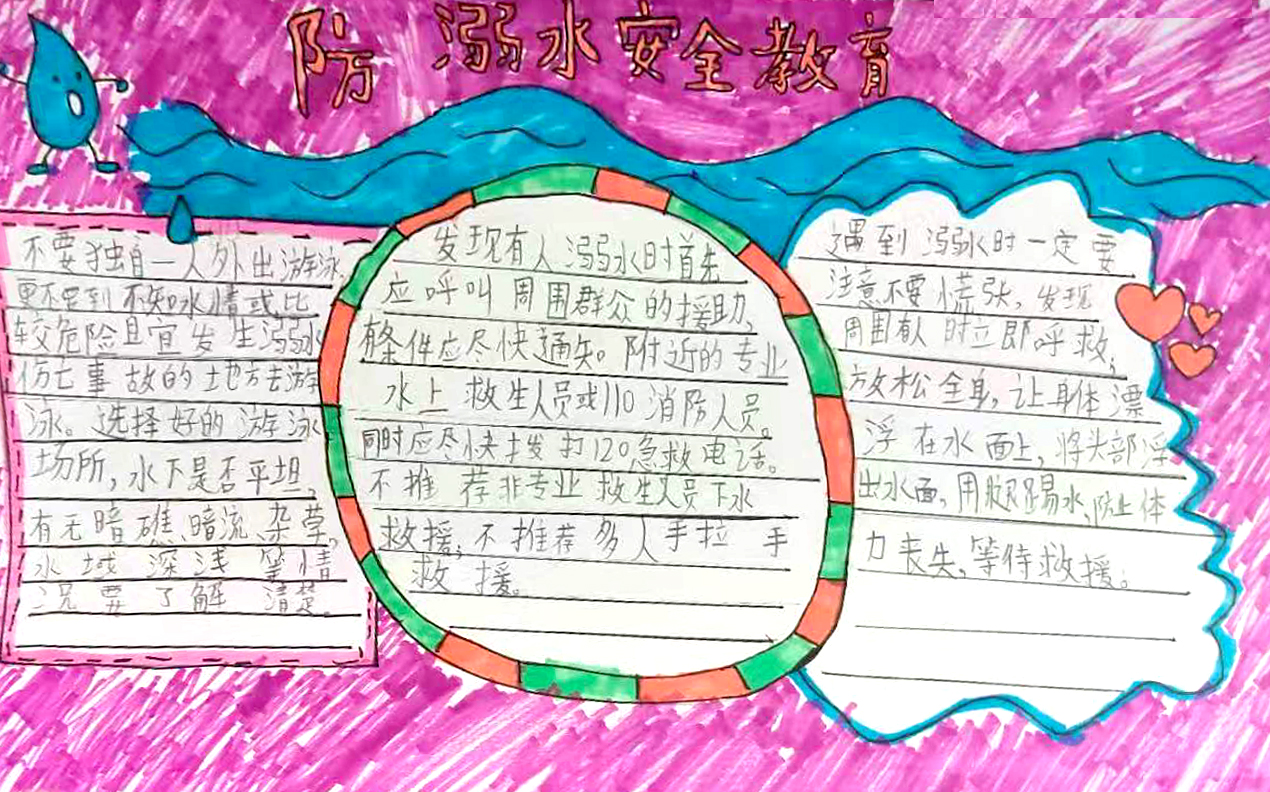 防溺水安全教育
不要独自一人外出游泳,
更不要到不知水情或比
较危险且宜发生溺水
伤亡事故的地方去游
泳。选择好的游泳
场所,水下是否平坦,
有无暗礁、暗流、杂草,
水域深浅等情
况要了解清楚。
发现有人溺水时首先
应呼叫周围群众的援助,
有条件应尽快通知。附近的专业
水上救生人员或110消防人员。
同时应尽快拨打120急救电话。
不推荐非专业救生人员下水
救援,不推荐多人手拉手
救援。
遇到溺水时一定要
注意不要慌张,发现
周围有人时立即呼救;
放松全身,让身体漂
浮在水面上,将头部浮
出水面,用脚踢水,防止体
力丧失,等待救援;